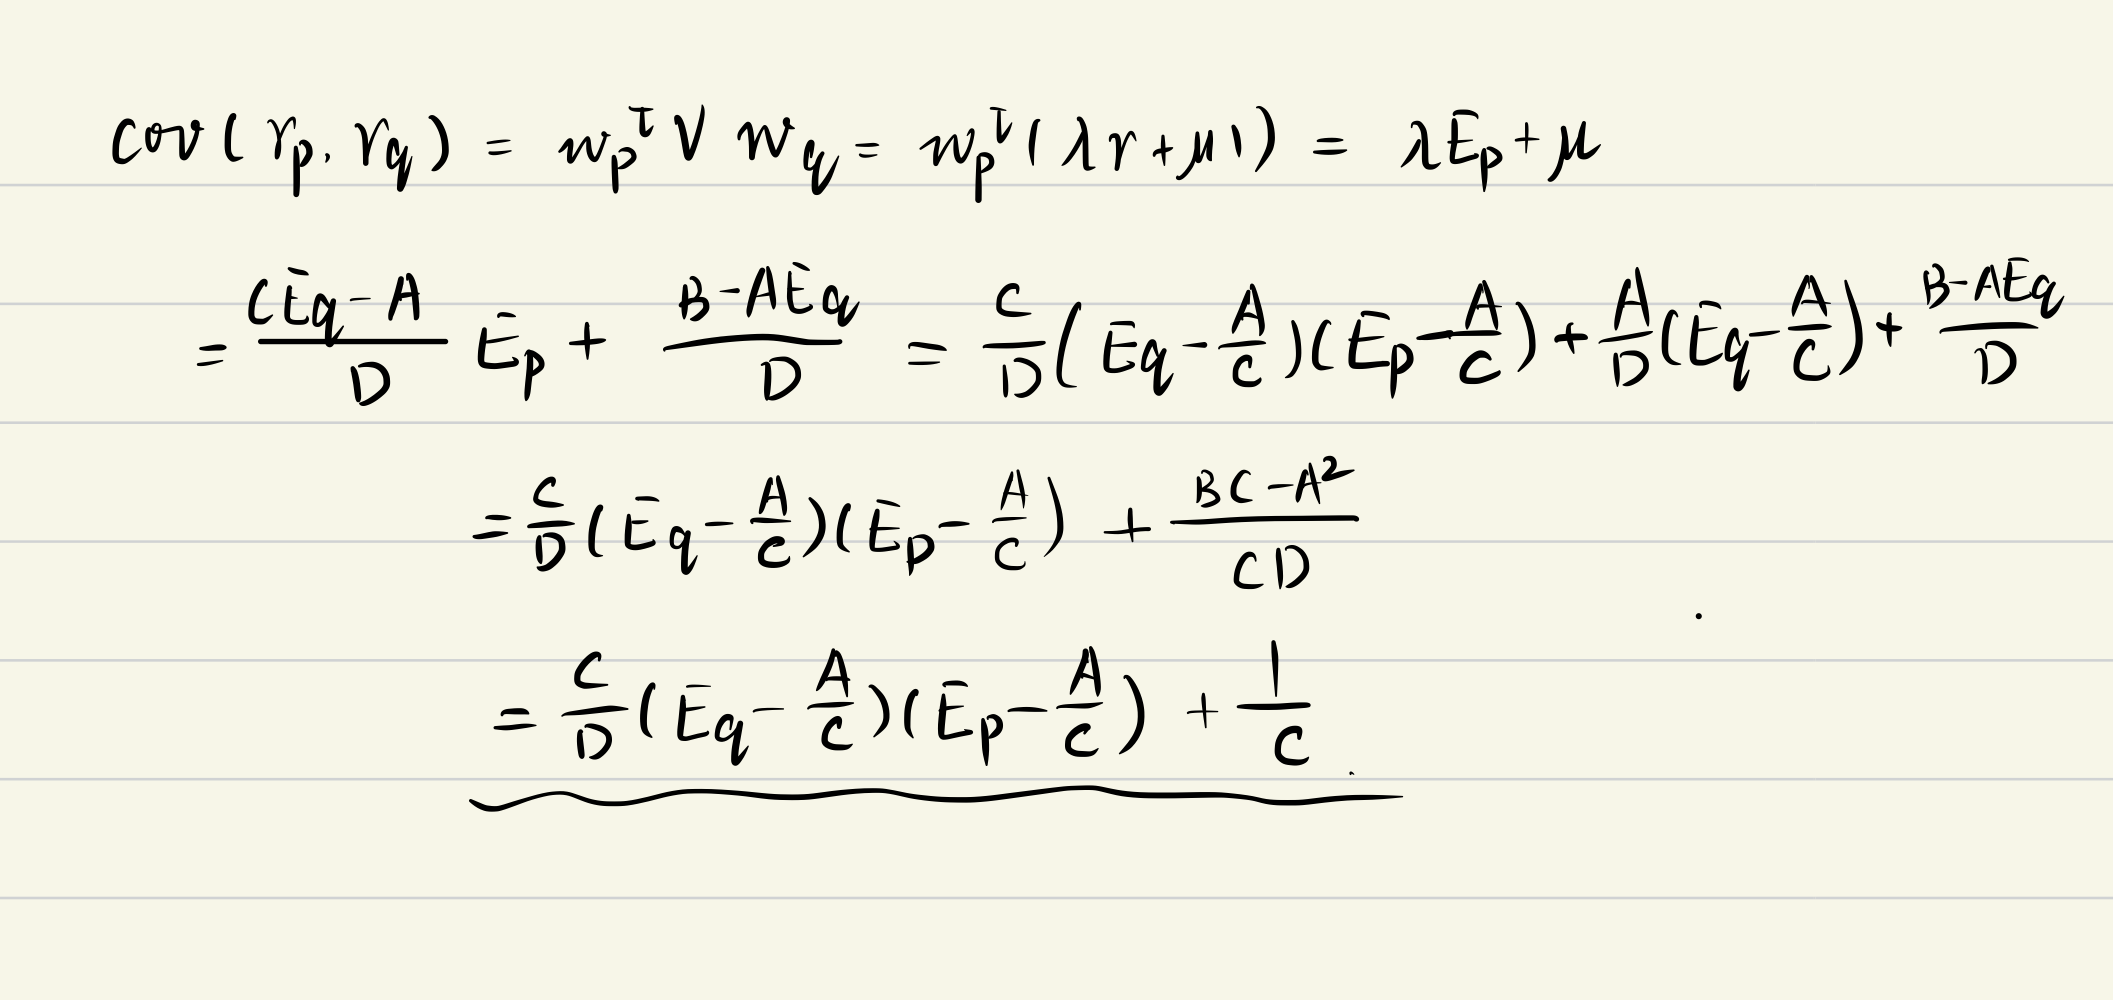 cov(r_p, r_q) = w_p^T V w_q = w_p^T(λr+μ1) = λE_p+μ
= (CE_q-A)/D E_p + (B-AE_q)/D = C/D(E_q-A/C)(E_p-A/C)+A/D(E_q-A/C)+(B-AE_q)/D
= C/D(E_q-A/C)(E_p-A/C) + (BC-A²)/(CD)
= C/D(E_q-A/C)(E_p-A/C) + 1/C